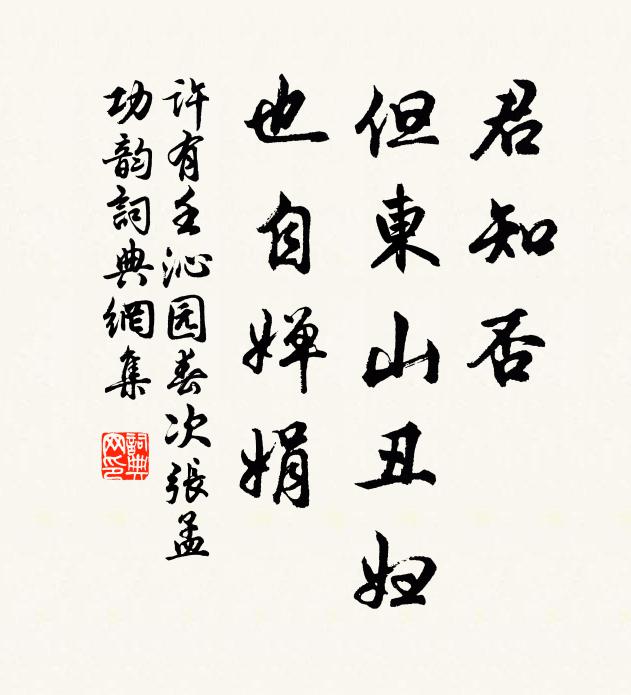 君知否
但東山丑妇
也自婵娟
许有壬沁园春次張孟
功韵詞典網集
詞典
网印